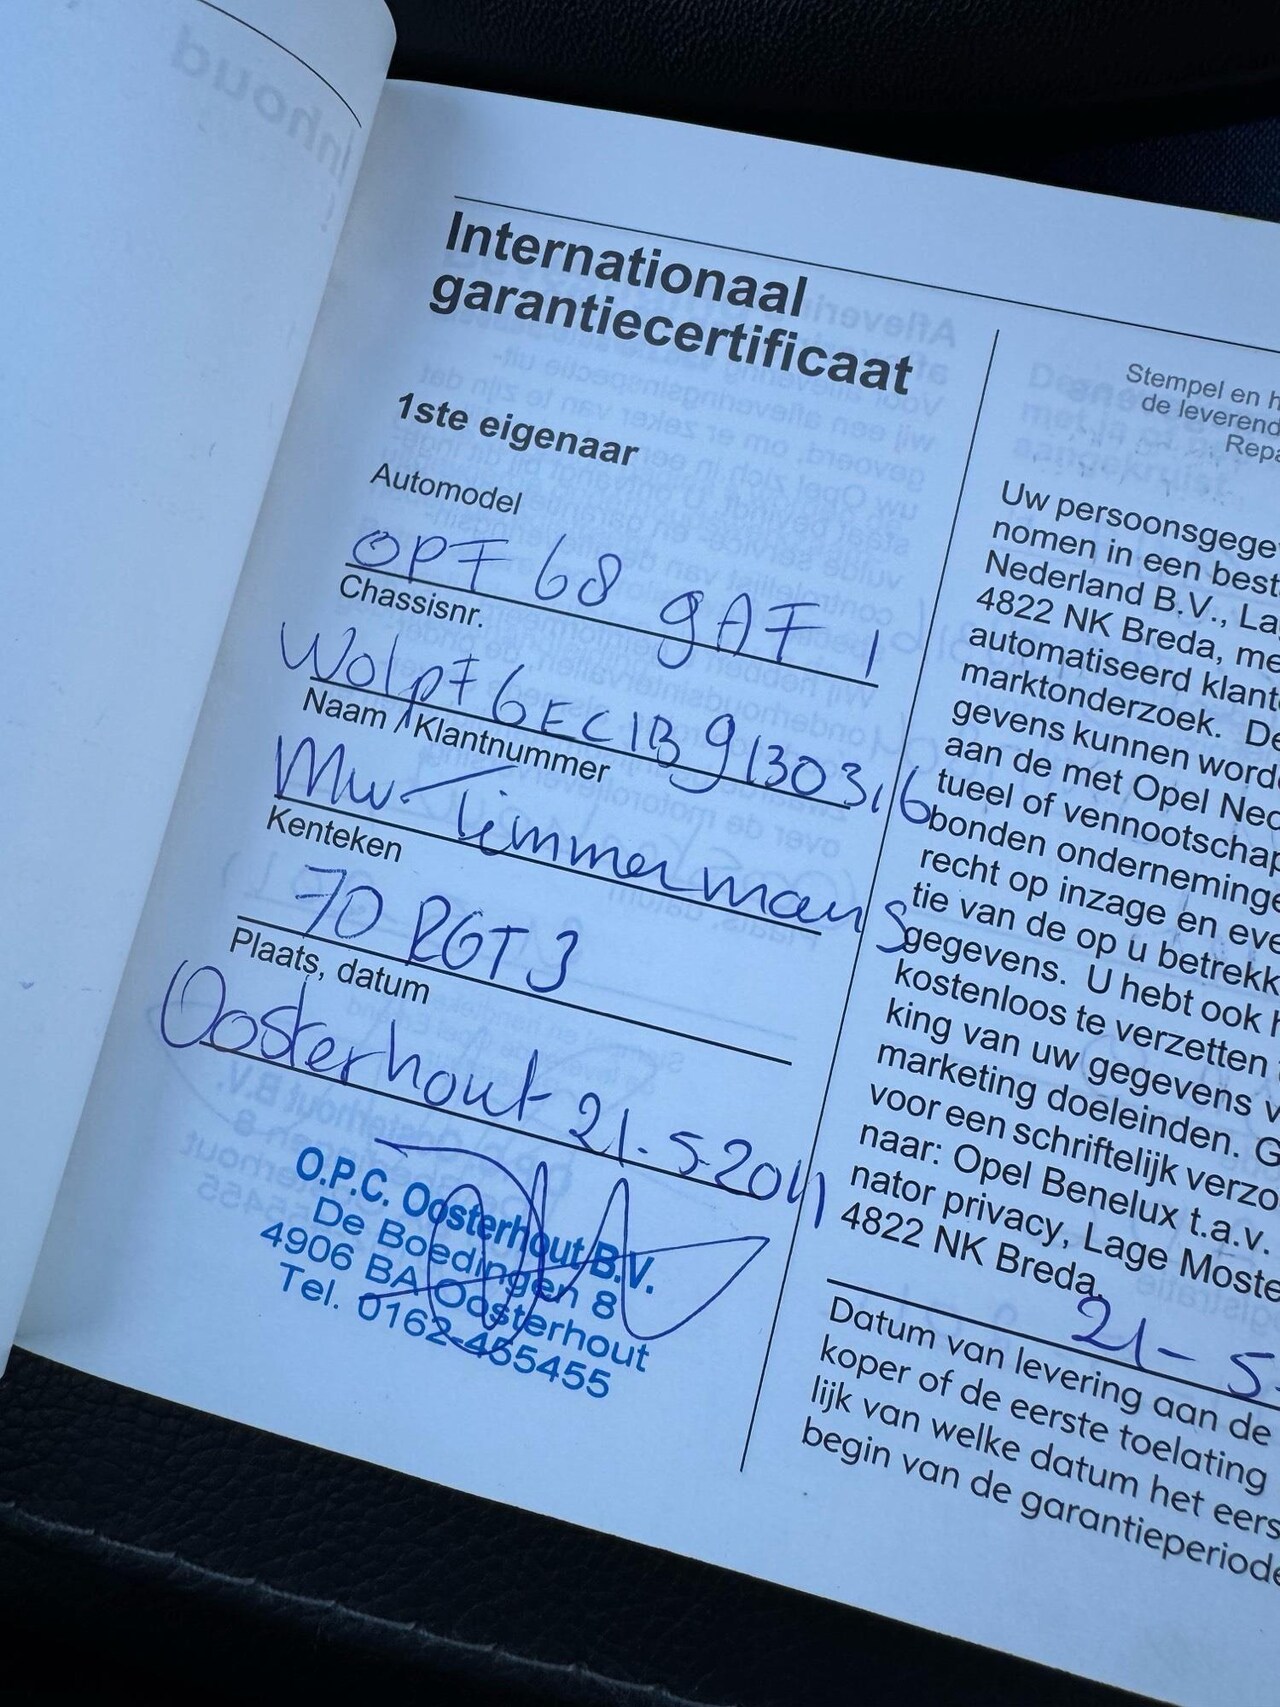 Inhoud
Internationaal
garantiecertificaat
1ste eigenaar
Automodel
OPF 68 gAF 1
Chassisnr.
WolpF6EC1B9130316
Naam / Klantnummer
Mw Timmermans
Kenteken
70 RGT 3
Plaats, datum
Oosterhout 21.5.2011
O.P.C. Oosterhout B.V.
De Boedingen 8
4906 BA Oosterhout
Tel. 0162-455455
Stempel en h
de leverend
Repa
Uw persoonsgege
nomen in een best
Nederland B.V., La
4822 NK Breda, me
automatiseerd klant
marktonderzoek. De
gevens kunnen word
aan de met Opel Ned
tueel of vennootschap
bonden onderneminge
recht op inzage en eve
tie van de op u betrekk
gegevens. U hebt ook h
kostenloos te verzetten
king van uw gegevens v
marketing doeleinden. G
voor een schriftelijk verzo
naar: Opel Benelux t.a.v.
nator privacy, Lage Moste
4822 NK Breda.
21-5-
Datum van levering aan de
koper of de eerste toelating
lijk van welke datum het eers
begin van de garantieperiode